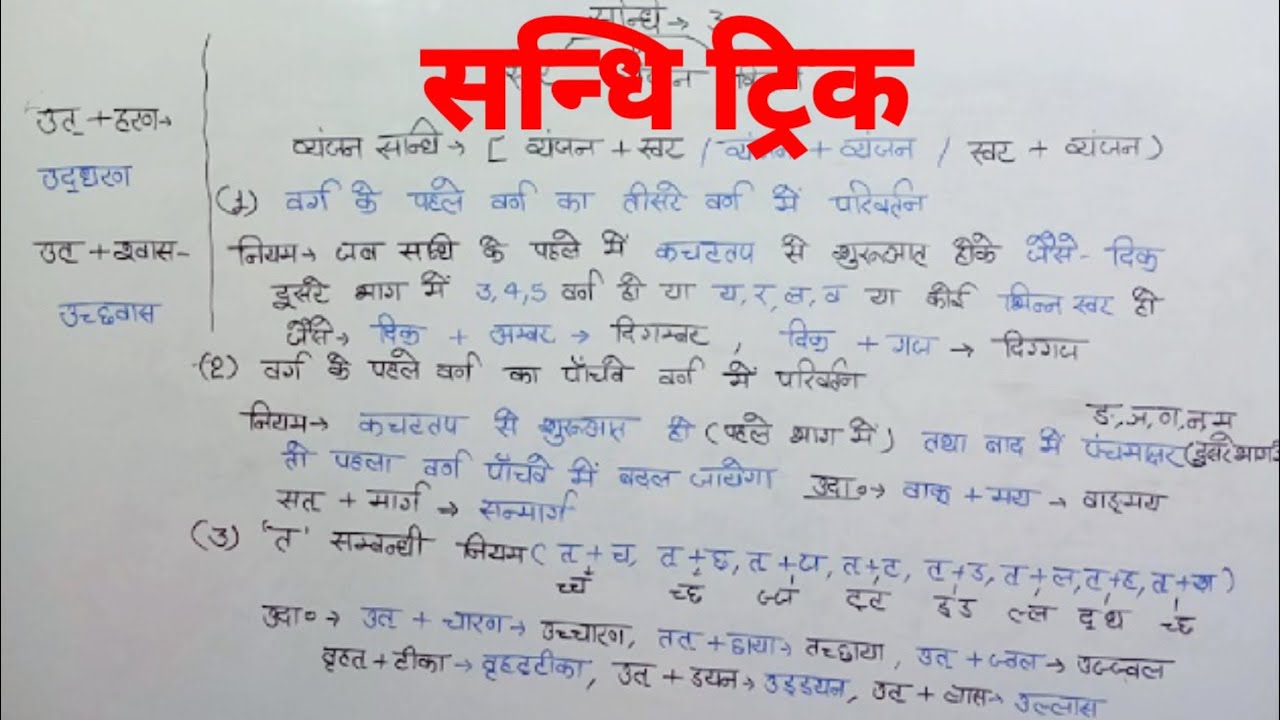 सन्धि → 3
सन्धि ट्रिक
व्यंजन सन्धि → [ व्यंजन + स्वर / व्यंजन + व्यंजन / स्वर + व्यंजन )
(1) वर्ग के पहले वर्ण का तीसरे वर्ण में परिवर्तन
नियम → जब सन्धि के पहले में कचटतप से शुरूआत होके जैसे - दिक्
दूसरे भाग में 3,4,5 वर्ण हो या य,र,ल,व या कोई भिन्न स्वर हो
जैसे → दिक् + अम्बर → दिगम्बर , दिक् + गज → दिग्गज
(2) वर्ग के पहले वर्ण का पाँचवे वर्ण में परिवर्तन
ङ,ञ,ण,न,म
नियम → कचटतप से शुरूआत हो (पहले भाग में) तथा बाद में पंचमाक्षर (दूसरे भाग में
तो पहला वर्ण पाँचवे में बदल जायेगा उदा० → वाक् + मय → वाङ्मय
सत् + मार्ग → सन्मार्ग
(3) 'त' सम्बन्धी नियम ( त् + च, त् + छ, त् + ज, त् + ट, त् + ड, त् + ल, त् + ह, त् + श )
च्च च्छ ज्ज ट्ट ड्ड ल्ल द्ध च्छ
उदा० → उत् + चारण → उच्चारण, तत् + छाया → तच्छाया , उत् + ज्वल → उज्ज्वल
वृहत् + टीका → वृहट्टीका, उत् + डयन → उड्डयन, उत् + लास → उल्लास
उत् + हरण →
उद्धरण
उत् + श्वास -
उच्छवास